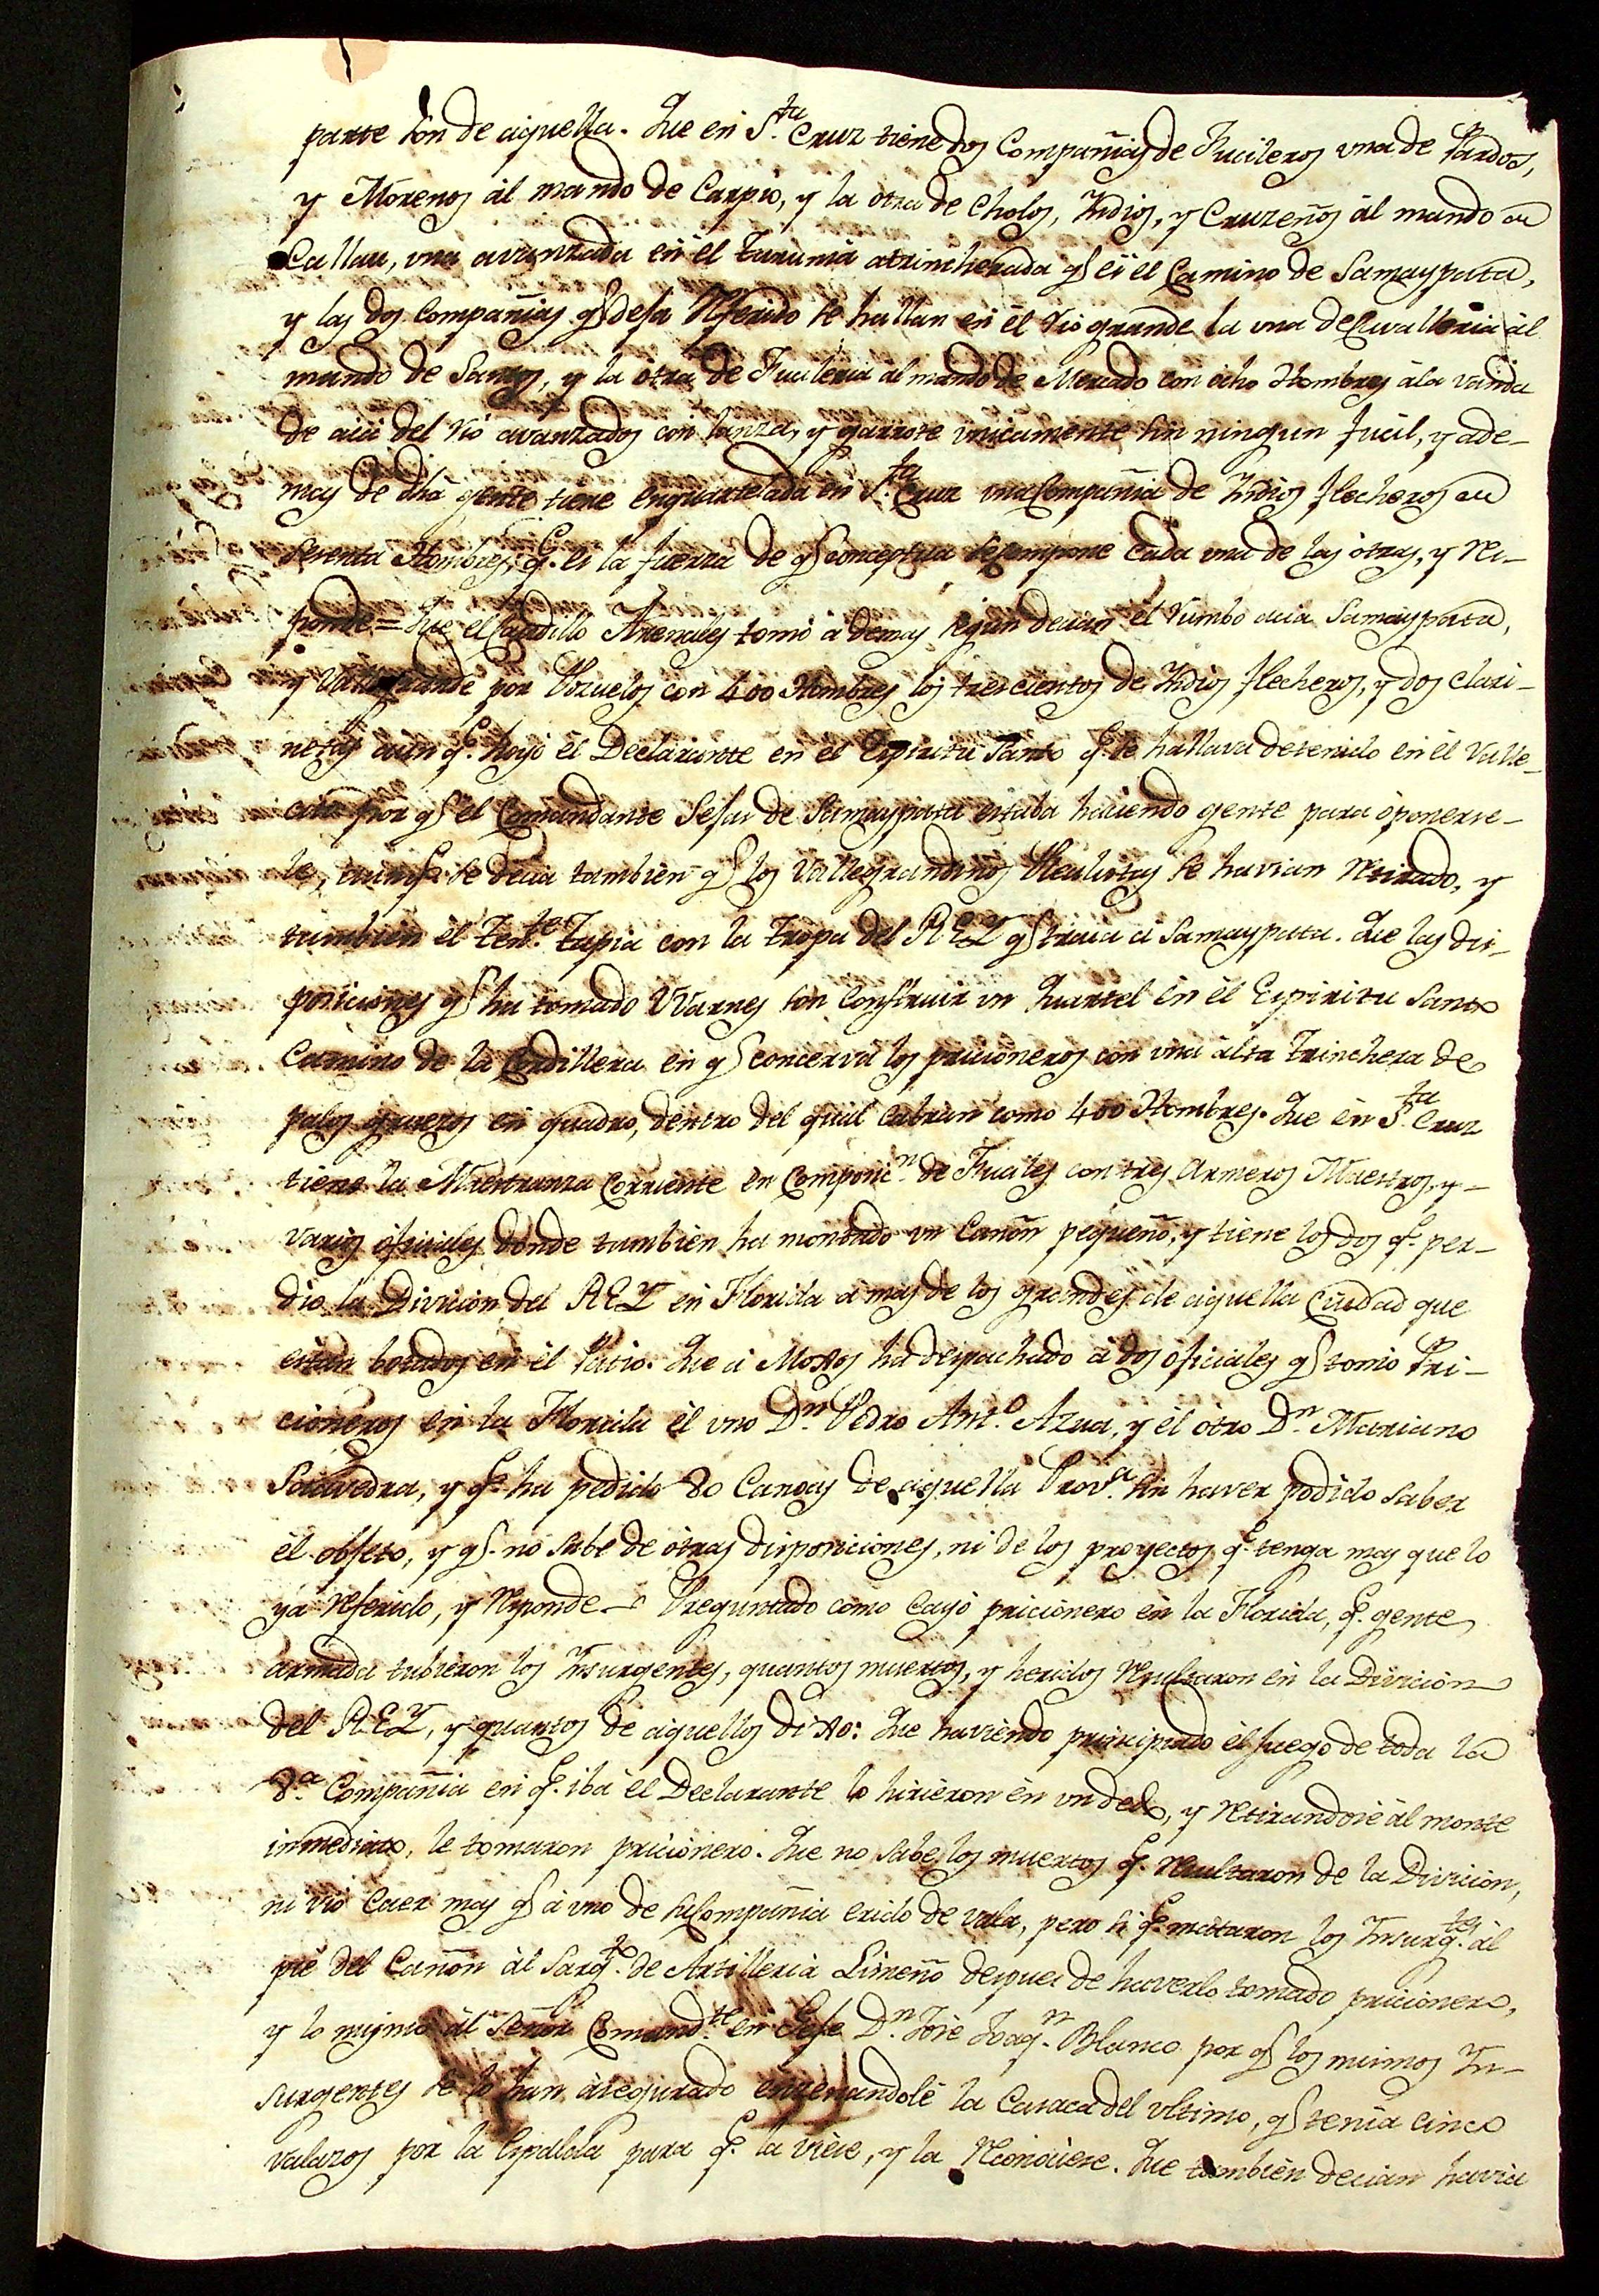 parte son de aquella. Que en S.ta Cruz tiene dos Compañias de Fucileros vna de Pardos,
y Morenos ál mando de Carpio, y la otra de Cholos, Yndios, y Cruzeños ál mando de
Callau, vna avanzada en él Turumá atrincherada q.e es él Camino de Samaypata,
y las dos Compañias q.e desa Referido se hallan en él Rio grande la vna de Cavalleria ál
mando de Santos, y la ótra de Fucileria al mando de Mercado con ocho Hombres ála vanda
de acá del Rio avanzados con lanza, y garrote unicamente sin ningun fucil, y ade-
mas de dha gente tiene enquartelada en S.ta Cruz vna Compañia de Yndios flecheros de
sesenta Hombres, q.e es la fuerza de q.e conceptua se compone cada vna de las ótras, y Res-
ponde = Que el Caudillo Arenales tomó á demas segun decian él Rumbo acia Samaypata,
y Vallegrande por Pozuelos con 400 Hombres los trescientos de Yndios flecheros, y dos clari-
netas aun q.e hoyó él Declarante en el Espiritu Santo q.e se hallava detenido en él Valle-
cito por q.e el Comandante Sesar de Samaypata estaba haciendo gente para óponerse-
le, aunq.e se decia tambien q.e los Vallegrandinos Realistas se havian Retirado, y
tambien él Ten.te Tapia con la Tropa del REY q.e traia á Samaypata. Que las dis-
posiciones q.e ha tomado Warnes son Construir vn Quartel en él Espiritu Santo
Camino de la Cordillera en q.e concerva los pricioneros con vna alta Trinchera de
palos gruezos en quadro, dentro del qual cabran como 400 Hombres. Que en S.ta Cruz
tiene la Maestranza Corriente en Composic.n de Fuciles con tres Armeros Maestros, y
varios oficiales donde tambien ha montado vn Cañon pequeño, y tiene los dos q.e per-
dio la Divicion del REY en Florida á mas de los grandes de aquella Ciudad que
estan botados en él Patio. Que á Moxos ha despachado á dos oficiales q.e tomó Pri-
cioneros en la Florida él vno D.n Pedro Ant.o Azua, y él ótro D.n Mariano
Saavedra, y q.e ha pedido 80 Canoas de aquella Prov.a sin haver podido saber
él obfeto, y q.e no sabe de ótras disposiciones, ni de los proyectos q.e tenga mas que lo
yá Referido, y Responde = Preguntado como Cayó pricionero en la Florida, q.e gente
armada tubieron los Ynsurgentes, quantos muertos, y heridos Resultaron en la Divicion
del REY, y quantos de aquellos dixo: Que haviendo principiado él fuego de toda la
8.a Compañia en q.e iba él Declarante lo hirieron en vn dedo, y Retirandose ál monte
inmediato, le tomaron pricionero. Que no sabe los muertos q.e Resultaron de la Divicion,
ni vió Caer mas q.e á vno de su Compañia erido de vala, pero si q.e mataron los Ynsurg.tes ál
pie del Cañon ál Sarg.to de Artilleria Limeño despues de haverlo tomado pricionero,
y lo mismo ál Señor Comand.te en Gefe D.n Jose Joaq.n Blanco por q.e los mismos Yn-
surgentes se lo han asegurado enzenandole la Casaca del vltimo, q.e tenia cinco
valazos por la Espalda para q.e la viese, y la Reconociese. Que tambien decian havia